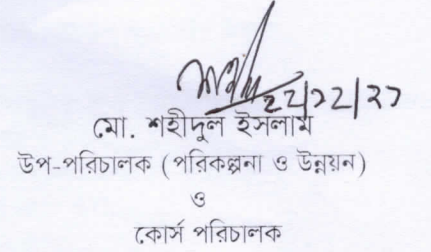 ২২/১২/২১
মো. শহীদুল ইসলাম
উপ-পরিচালক (পরিকল্পনা ও উন্নয়ন)
ও
কোর্স পরিচালক